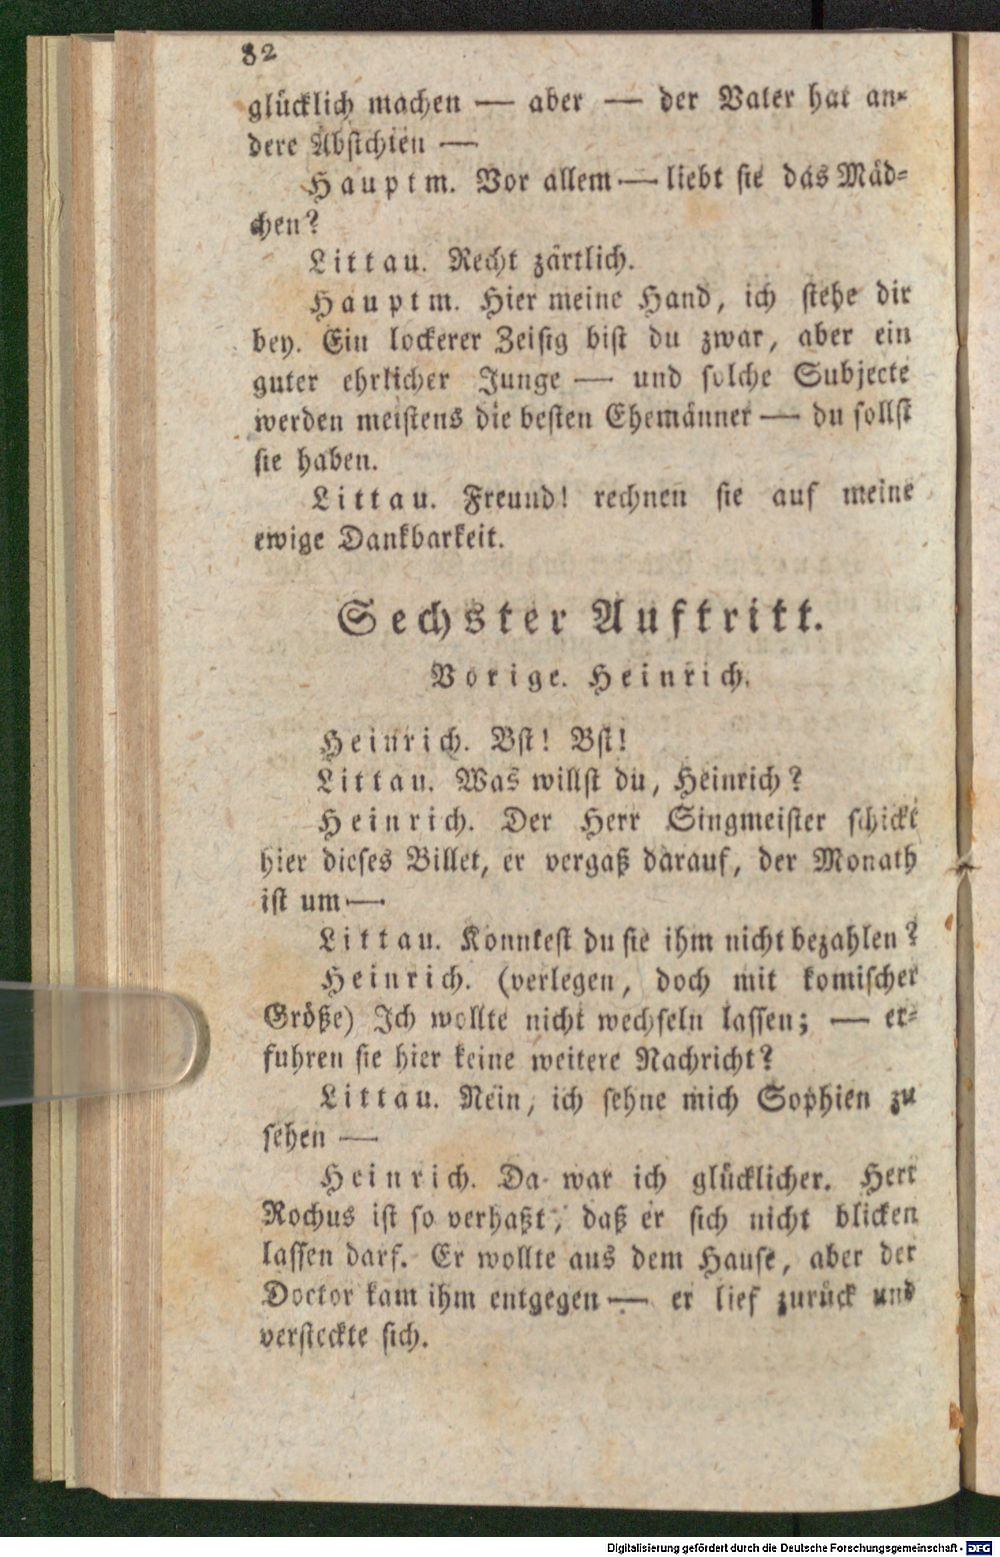 82
glücklich machen — aber — der Vater hat an-
dere Absichten —
Hauptm. Vor allem — liebt sie das Mäd-
chen?
Littau. Recht zärtlich.
Hauptm. Hier meine Hand, ich stehe dir
bey. Ein lockerer Zeisig bist du zwar, aber ein
guter ehrlicher Junge — und solche Subjecte
werden meistens die besten Ehemänner — du sollst
sie haben.
Littau. Freund! rechnen sie auf meine
ewige Dankbarkeit.
Sechster Auftritt.
Vorige. Heinrich.
Heinrich. Bst! Bst!
Littau. Was willst du, Heinrich?
Heinrich. Der Herr Singmeister schickt
hier dieses Billet, er vergaß darauf, der Monath
ist um —
Littau. Konntest du sie ihm nicht bezahlen?
Heinrich. (verlegen, doch mit komischer
Größe) Ich wollte nicht wechseln lassen; — er-
fuhren sie hier keine weitere Nachricht?
Littau. Nein, ich sehne mich Sophien zu
sehen —
Heinrich. Da war ich glücklicher. Herr
Rochus ist so verhaßt, daß er sich nicht blicken
lassen darf. Er wollte aus dem Hause, aber der
Doctor kam ihm entgegen — er lief zurück und
versteckte sich.
Digitalisierung gefördert durch die Deutsche Forschungsgemeinschaft - DFG